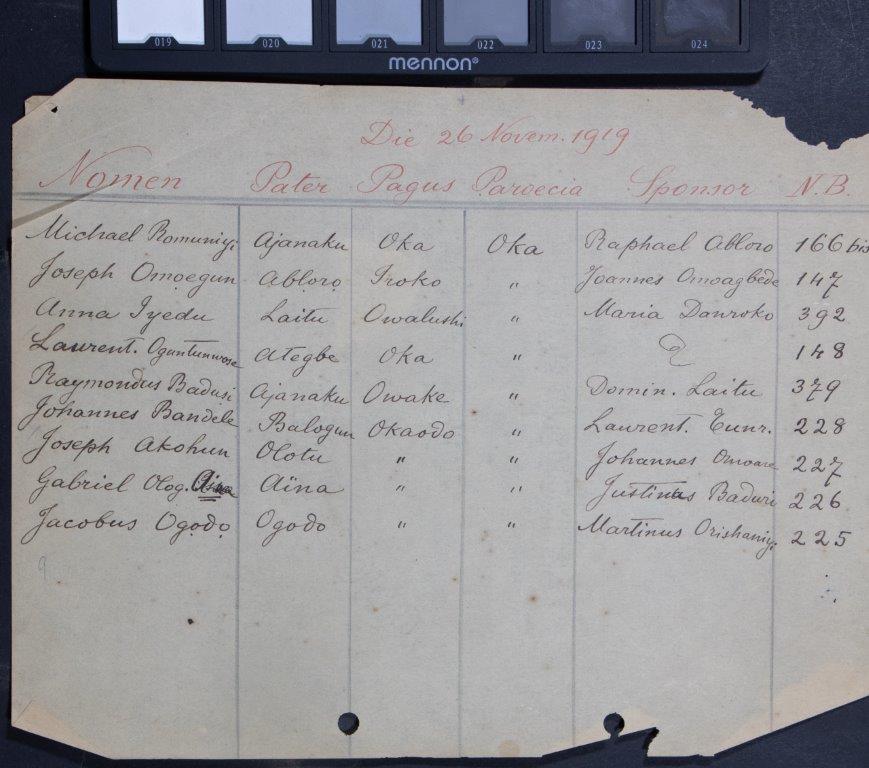 019 020 021 022 023 024
mennon®
Die 26 Novem. 1919
Nomen Pater Pagus Paroecia Sponsor N.B.
Michael Romuniyi Ajanaku Oka Oka Raphael Abloro 166 bis
Joseph Omoegun Abloro Iroko " Joannes Omoagbede 147
Anna Iyedu Laitu Owalushi " Maria Danroko 392
Laurent. Oguntunwose Ategbe Oka " 148
Raymondus Baduri Ajanaku Owake " Domin. Laitu 379
Johannes Bandele Balogun Okaodo " Laurent. Tunr. 228
Joseph Akohun Olotu " " Johannes Omoare 227
Gabriel Olog. Aïna " " Justinus Baduri 226
Jacobus Ogodo Ogodo " " Martinus Orishaniyi 225
9